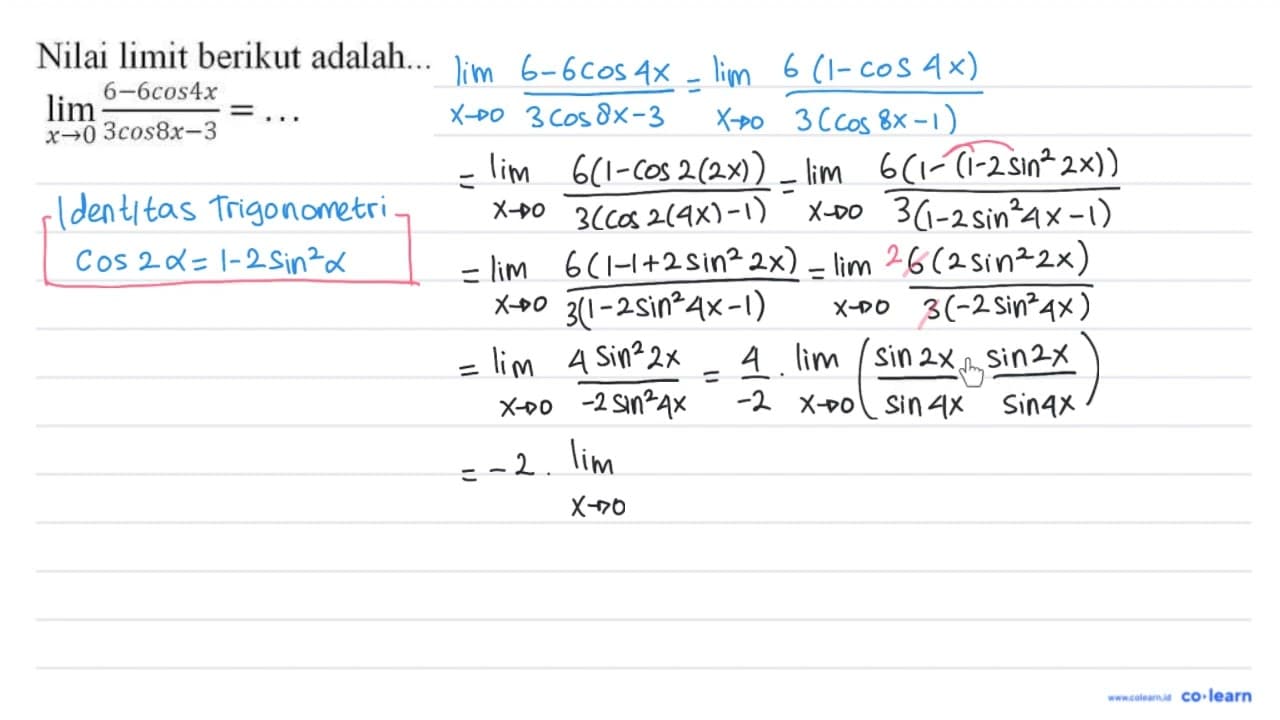 Nilai limit berikut adalah...
lim x→0 6−6cos4x / 3cos8x−3 = ...
Identitas Trigonometri
cos 2α = 1-2 sin²α
lim x→0 6-6cos 4x / 3cos 8x-3 = lim x→0 6 (1-cos 4x) / 3(cos 8x-1)
= lim x→0 6(1-cos 2(2x)) / 3(cos 2(4x)-1) = lim x→0 6(1-(1-2 sin² 2x)) / 3(1-2 sin² 4x-1)
= lim x→0 6(1-1+2 sin² 2x) / 3(1-2 sin² 4x-1) = lim x→0 2 6(2 sin² 2x) / 3(-2 sin² 4x)
= lim x→0 4 sin² 2x / -2 sin² 4x = 4 / -2 . lim x→0 (sin 2x / sin 4x sin 2x / sin 4x)
= -2 . lim x→0
www.colearn.id co·learn